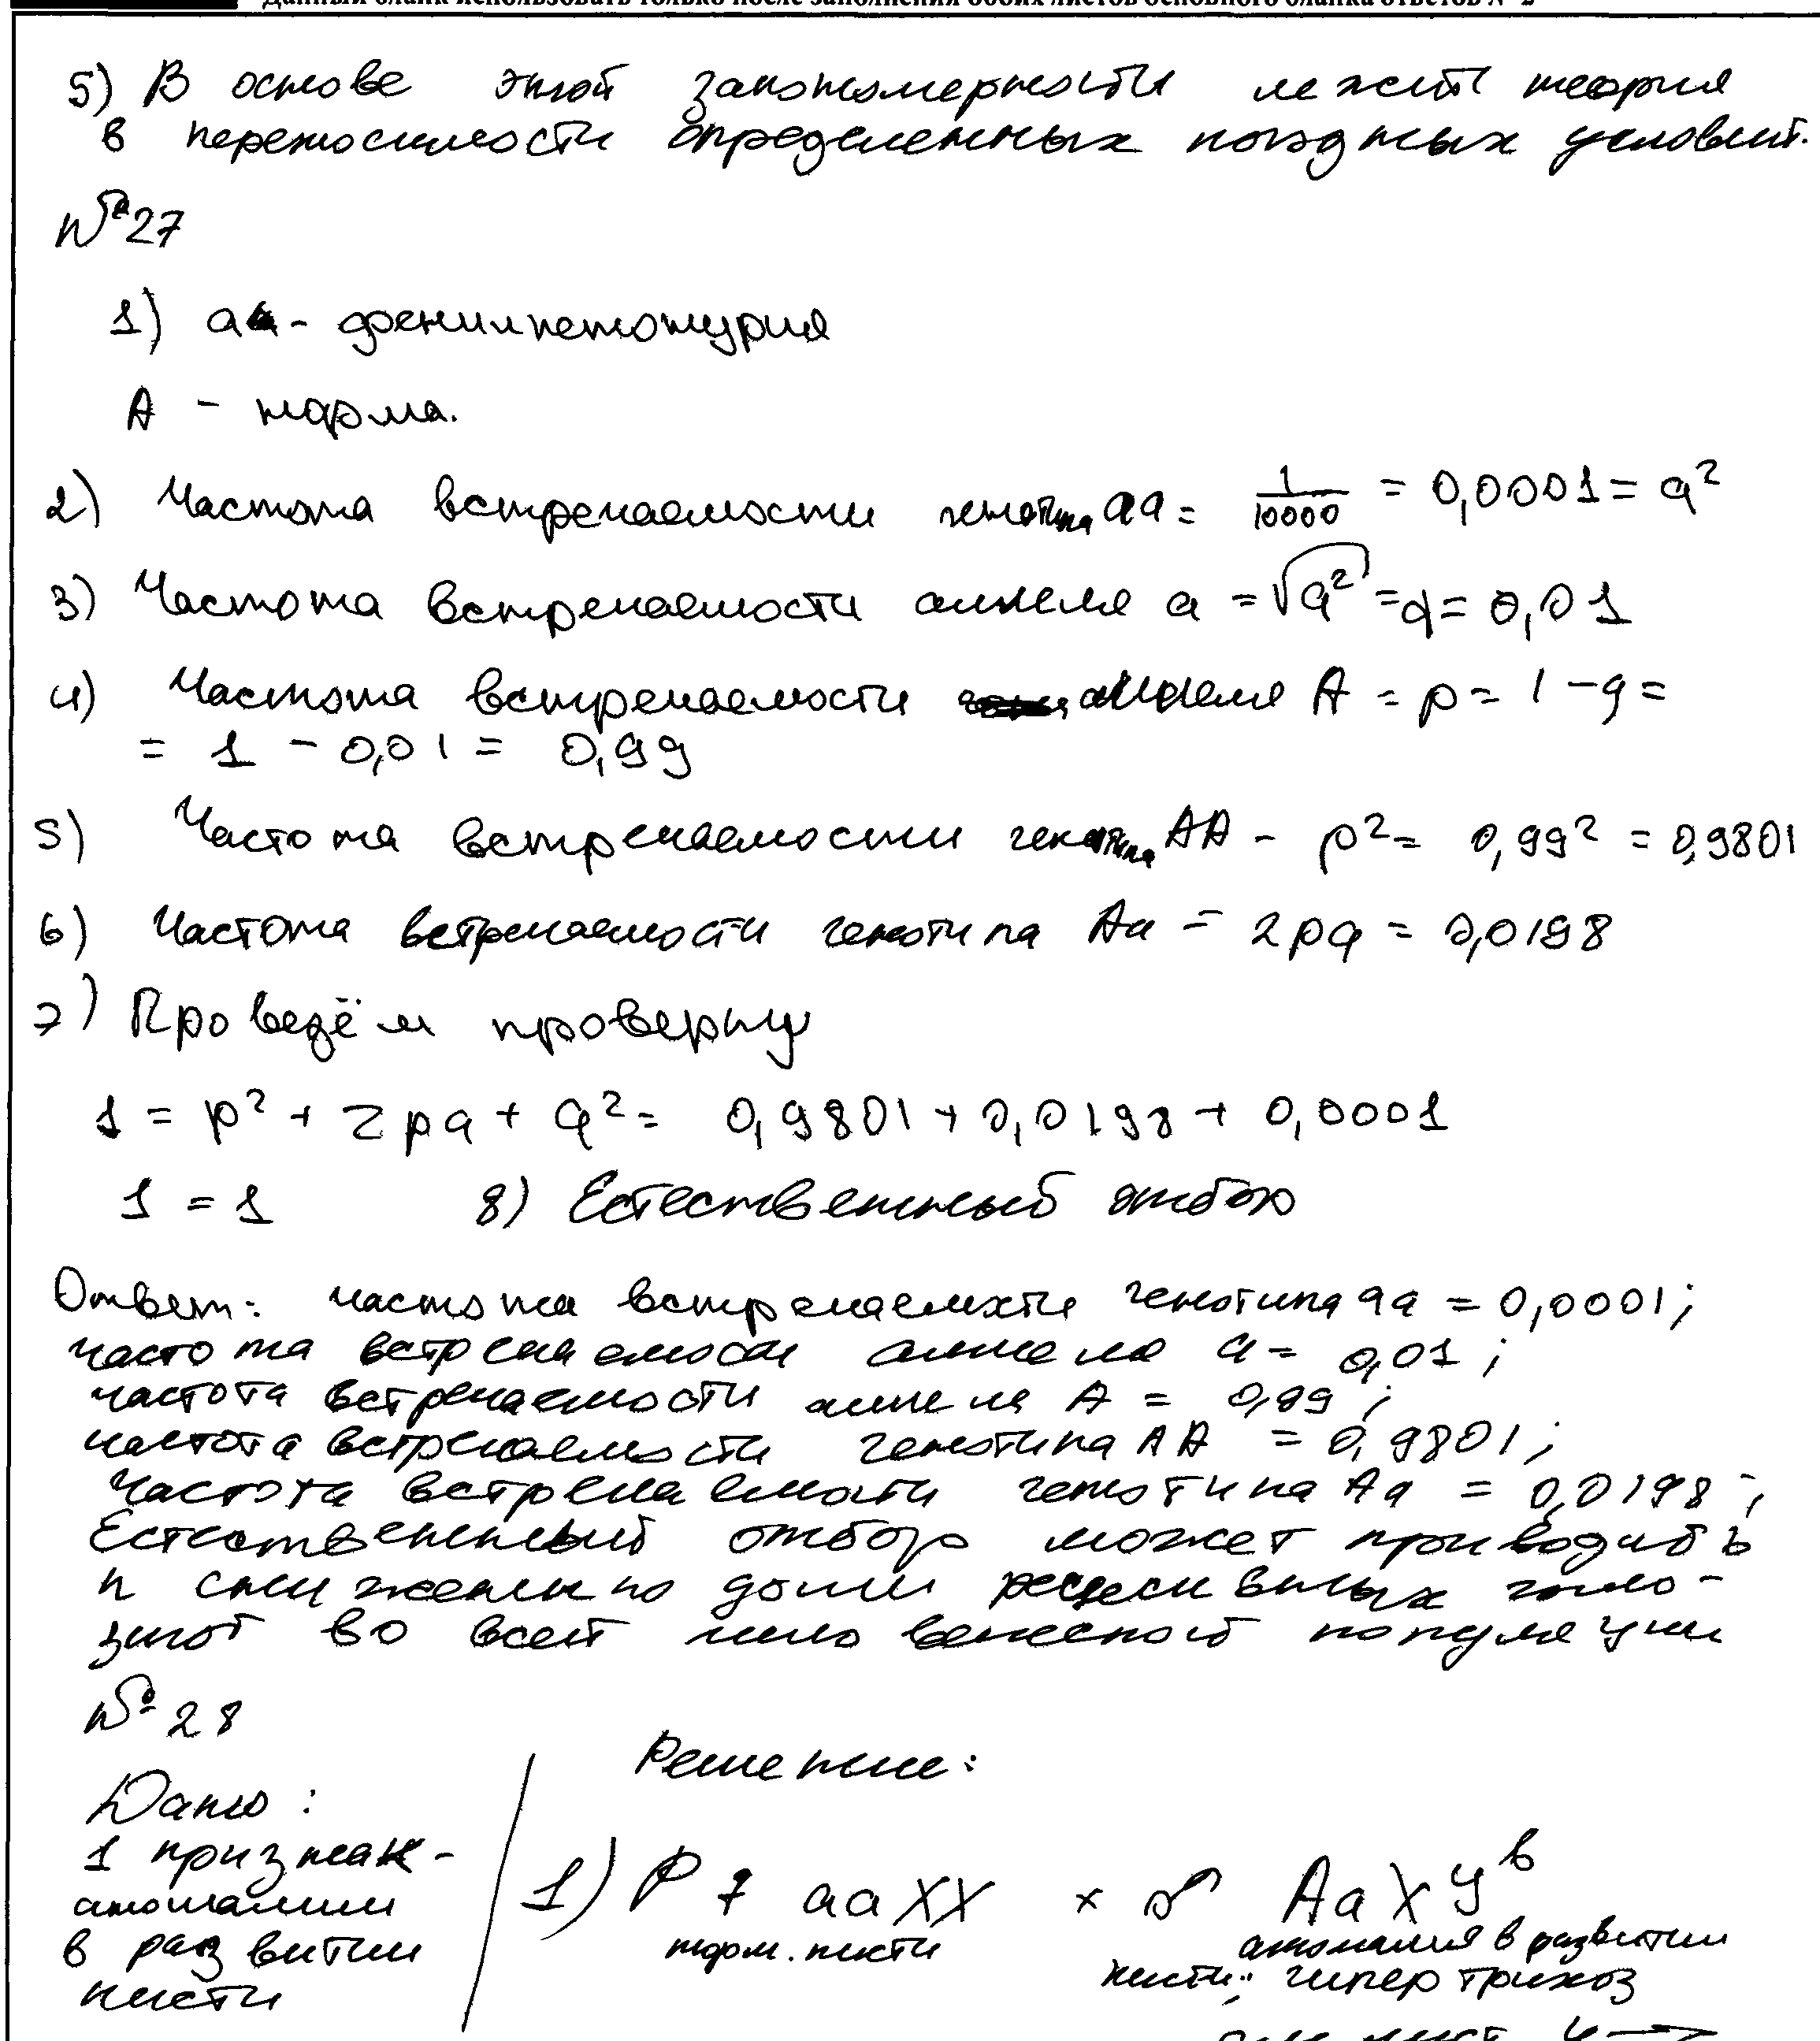 Данный бланк использовать только после заполнения обоих листов основного бланка ответов № 2
5) В основе этой закономерности лежит теория
в переносимости определенных погодных условий.
№27
1) аа - фенилкетонурия
А - норма.
2) Частота встречаемости генотипа аа = 1/10000 = 0,0001 = q²
3) Частота встречаемости аллеля а = √q² = q = 0,01
4) Частота встречаемости аллеля А = p = 1 - q =
= 1 - 0,01 = 0,99
5) Частота встречаемости генотипа АА - p² = 0,99² = 0,9801
6) Частота встречаемости генотипа Аа = 2pq = 0,0198
7) Проведём проверку
1 = p² + 2pq + q² = 0,9801 + 0,0198 + 0,0001
1 = 1 8) Естественный отбор
Ответ: частота встречаемости генотипа аа = 0,0001;
частота встречаемости аллеля а = 0,01;
частота встречаемости аллеля А = 0,99;
частота встречаемости генотипа АА = 0,9801;
Частота встречаемости генотипа Аа = 0,0198;
Естественный отбор может приводить
к снижению доли рецессивных гомо-
зигот во всей человеческой популяции
№28
Дано: Решение:
1 признак -
аномалии
в развитии
кисти
1) P ♀ aaXX × ♂ AaXYᵇ
норм. кисти аномалия в развитии
кисти; гипертрихоз
лист 4 →